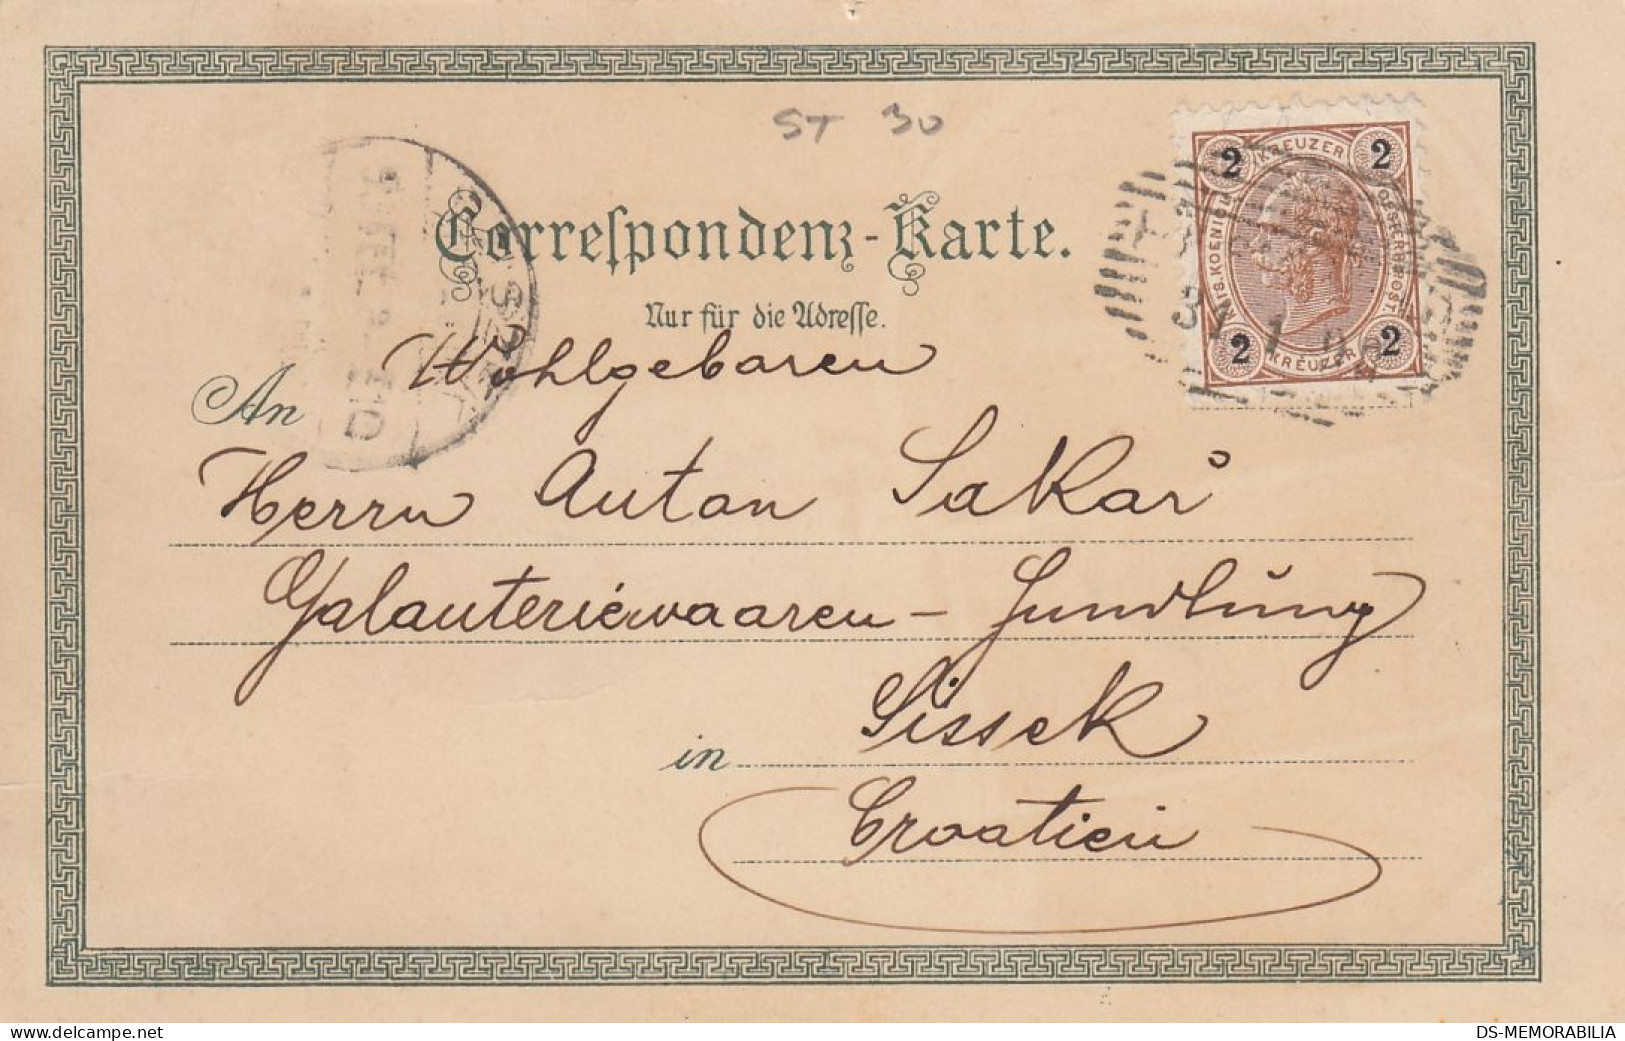 ST 30
2 KREUZER 2
KAIS. KOENIGL. OESTERR. POST.
2 KREUZER 2
31 1
Correspondenz-Karte.
Nur für die Adresse.
An Wohlgeboren
Herrn Anton Sakař
Galanteriewaaren - Handlung
in Sissek
Croatien
www.delcampe.net
DS-MEMORABILIA